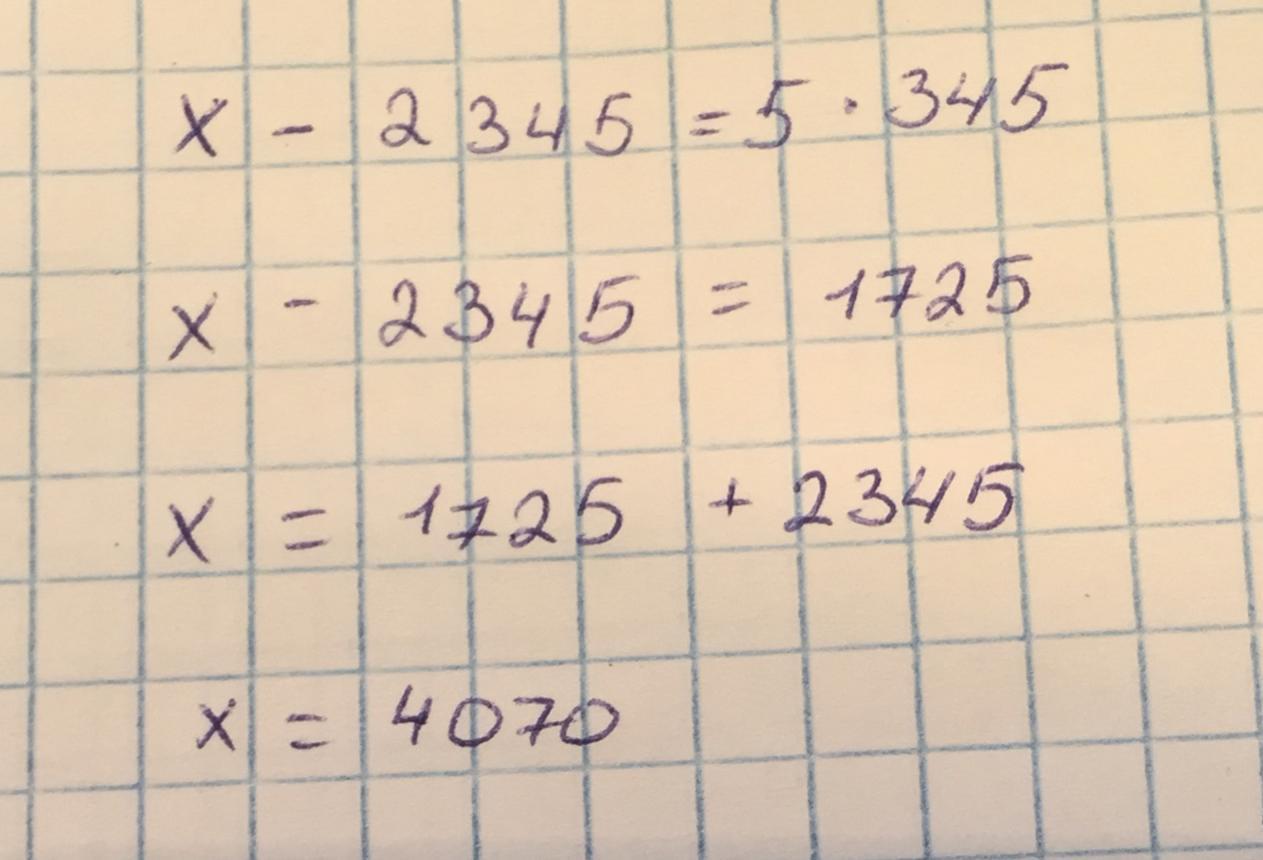 x - 2345 = 5 · 345
x - 2345 = 1725
x = 1725 + 2345
x = 4070